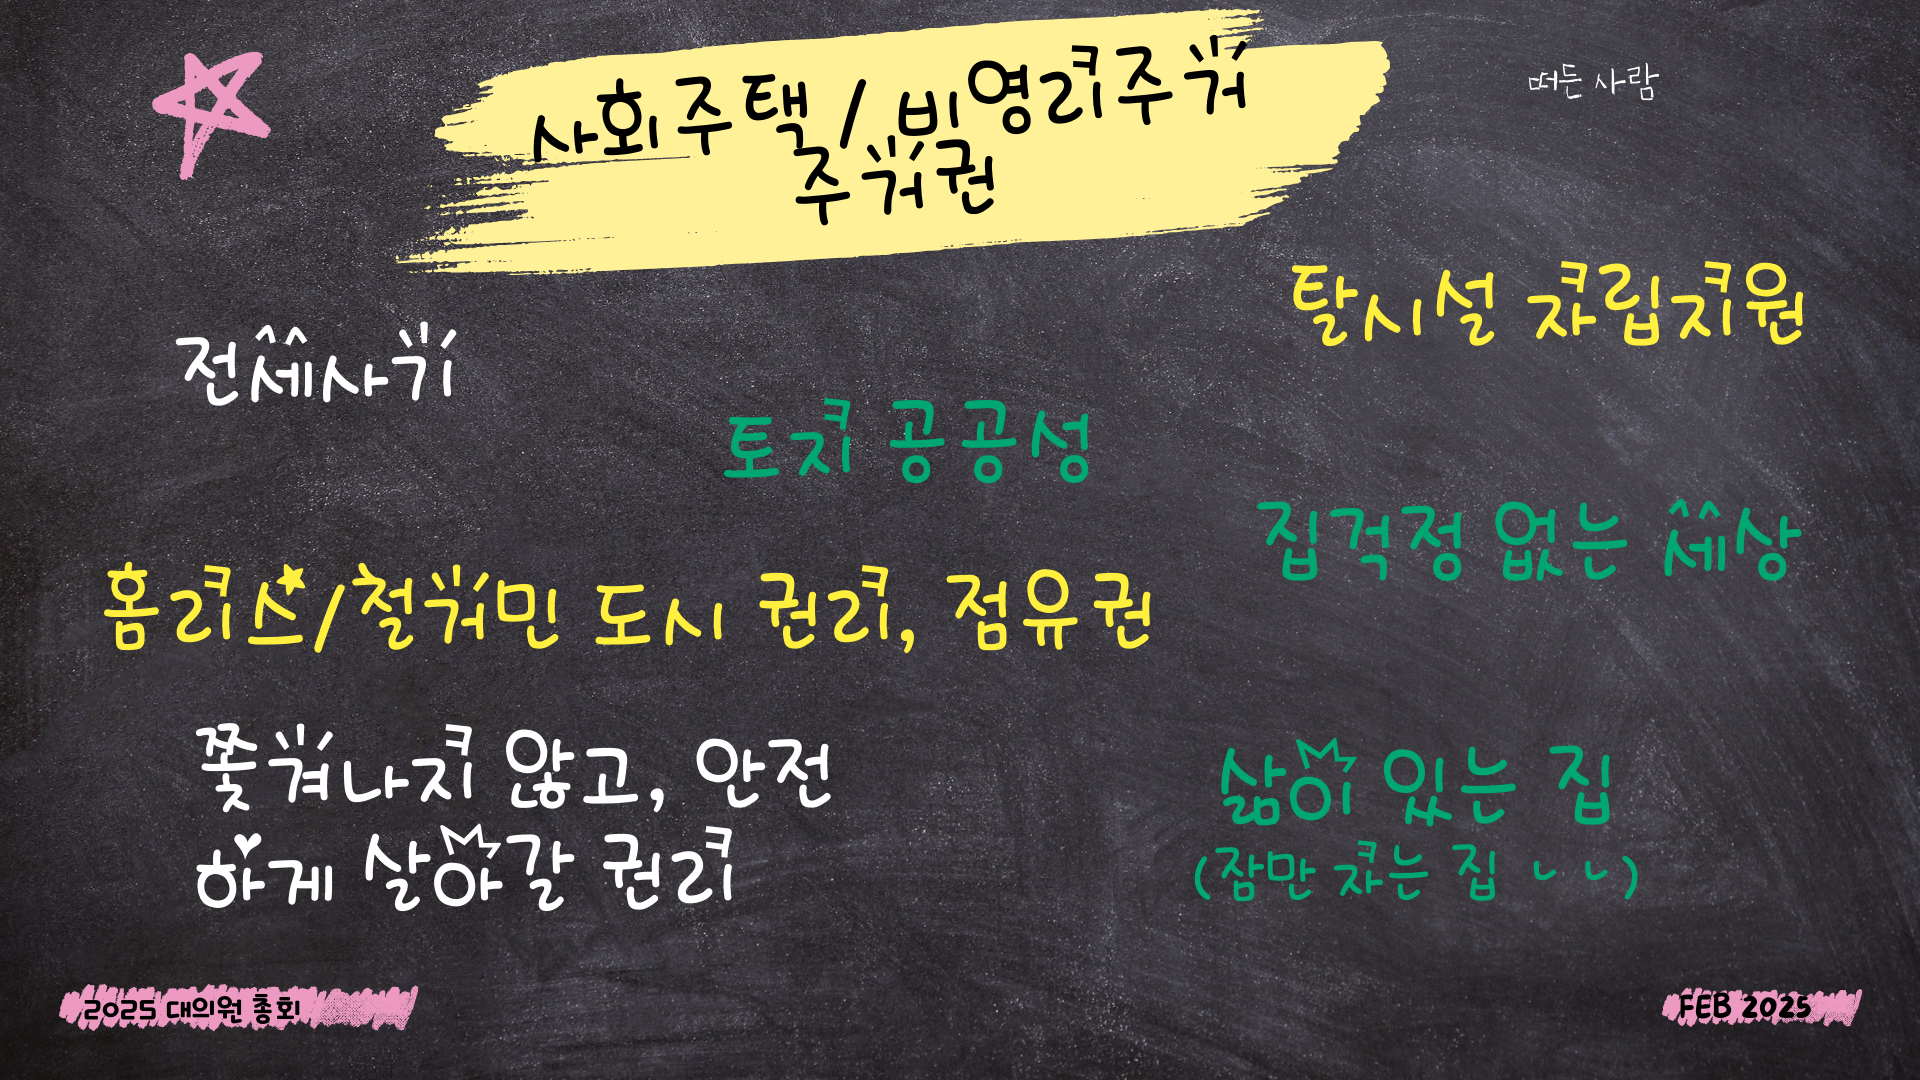 사회주택/비영리주거
주거권
떠든 사람
탈시설 자립지원
전세사기
토지 공공성
집걱정 없는 세상
홈리스/철거민 도시 권리, 점유권
쫓겨나지 않고, 안전
하게 살아갈 권리
삶이 있는 집
(잠만 자는 집 ㄴㄴ)
2025 대의원 총회
FEB 2025